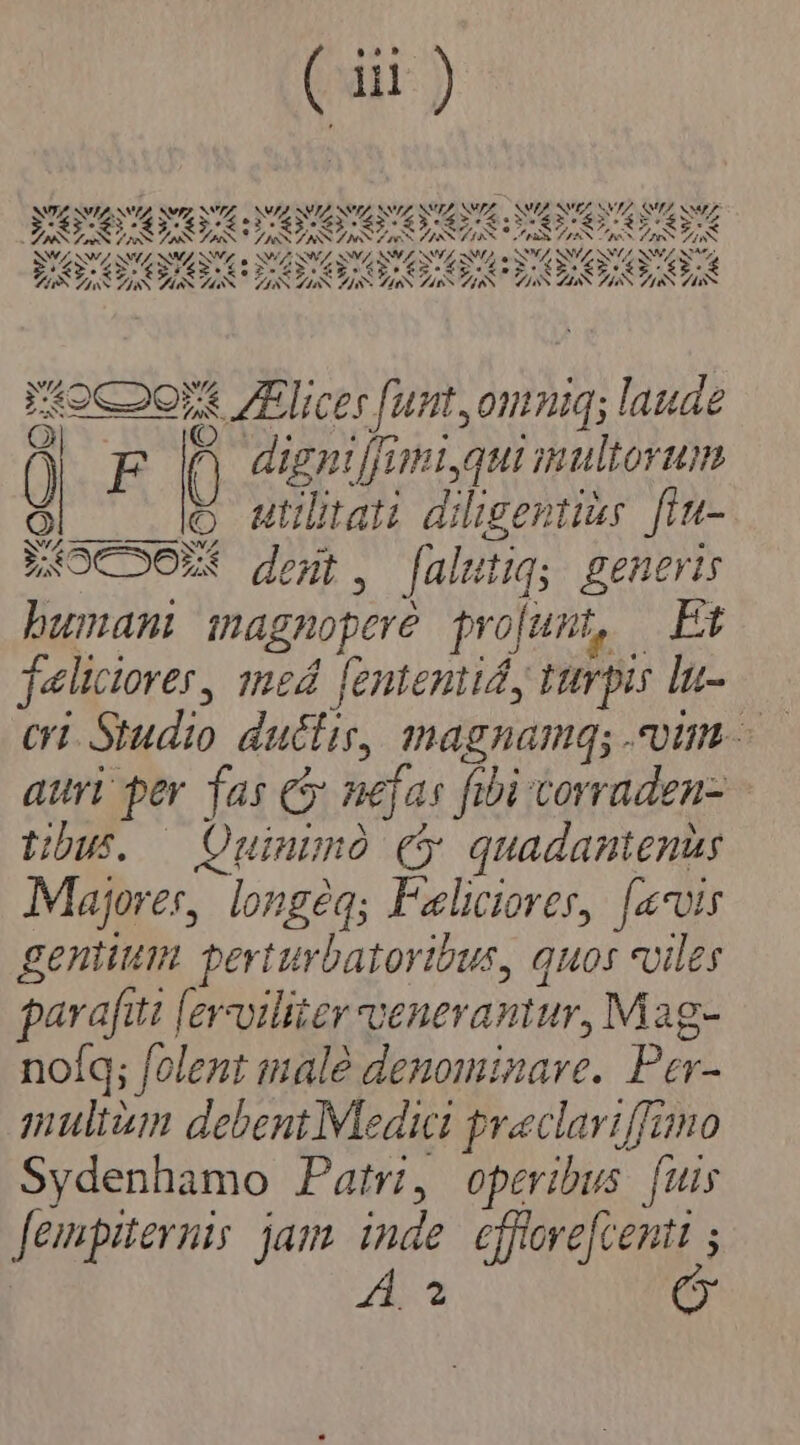 ( iii )
FÆlices ſunt, omniq; laude
digniſſimi, qui multorum
utilitati diligentiùs ſtu-
dent, ſalutiq; generis
humani magnoperè proſunt, Et
fæliciores, meâ ſententiâ, turpis lu-
cri Studio ductis, magnamq; vim
auri per fas & nefas ſibi corraden-
tibus. Quinimò & quadantenùs
Majores, longèq; Fæliciores, ſævis
gentium perturbatoribus, quos viles
paraſiti ſerviliter venerantur, Mag-
noſq; ſolent malè denominare. Per-
multùm debent Medici præclariſſimo
Sydenhamo Patri, operibus ſuis
ſempiternis jam inde effloreſcenti ;
A 2 &